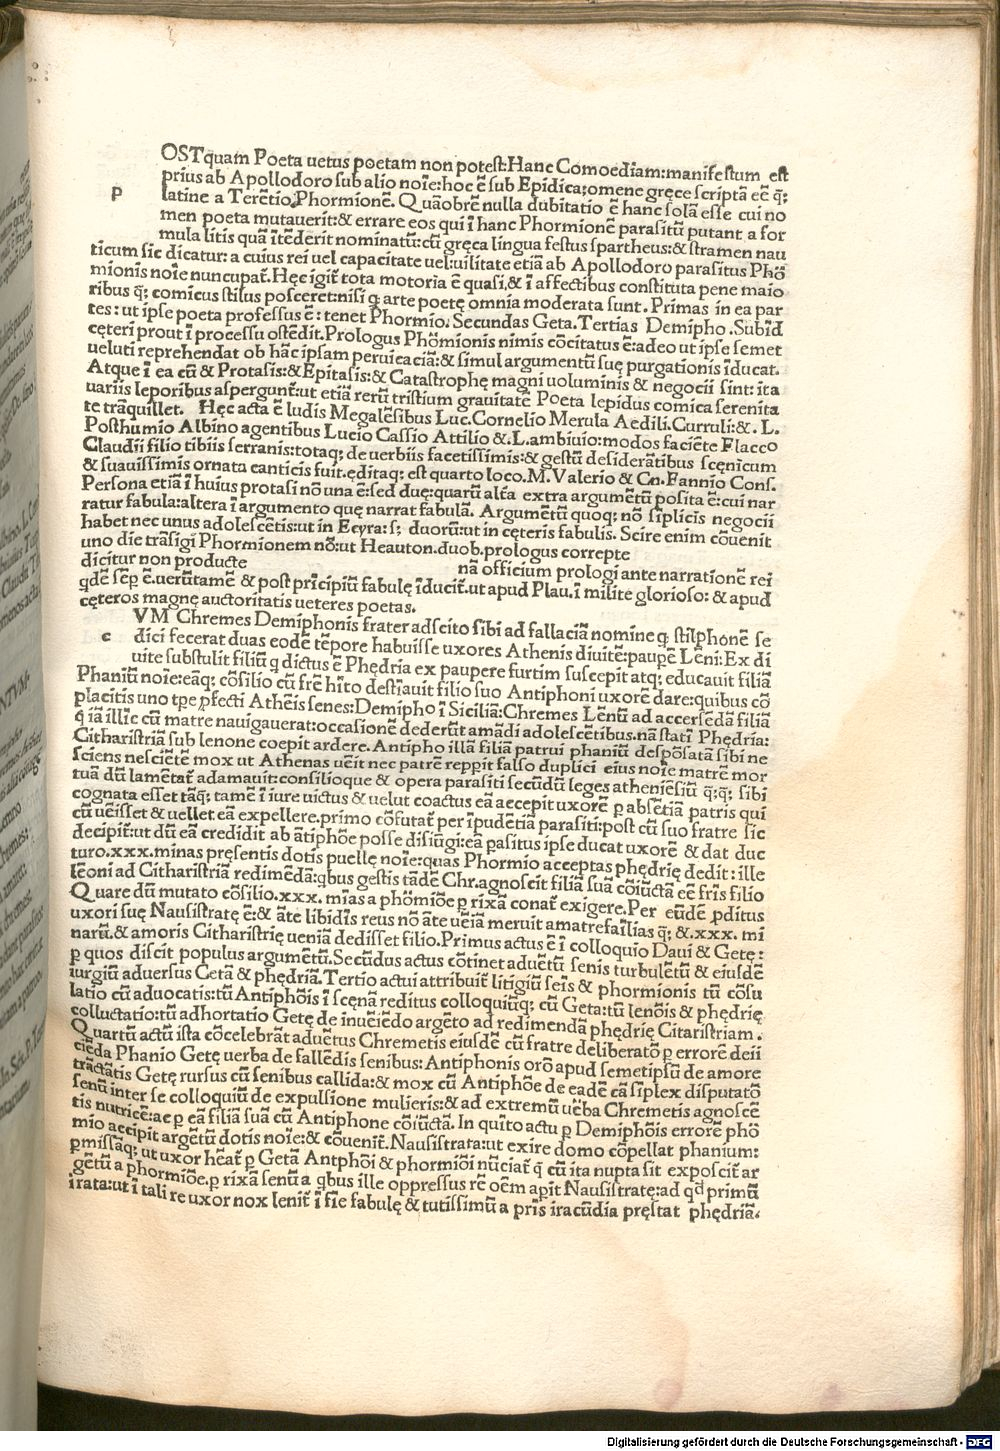 OSTquam Poeta uetus poetam non potest:Hanc Comoediam:manifestum est
prius ab Apollodoro sub alio noīe:hoc ē sub Epidica;omene gręce scriptā eē q̄;
P latine a Terētio,Phormionē. Quāobrē nulla dubitatio ē hanc solā esse cui no
men poeta mutauerit:& errare eos qui ī hanc Phormionē parasitū putant a for
mula litis quā ītēderit nominatū:cū gręca lingua festus spartheus:& stramen nau
ticum sic dicatur: a cuius rei uel capacitate uel:uilitate etiā ab Apollodoro parasitus Phō
mionis noīe nuncupat̄. Hęc igit̄ tota motoria ē quasi,& ī affectibus constituta pene maio
ribus q̄; comicus stilus posceret:nisi ꝙ arte poetę omnia moderata sunt. Primas in ea par
tes: ut ipse poeta professus ē: tenet Phormio. Secundas Geta. Tertias Demipho .Subīd
cęteri prout ī processu ostēdit.Prologus Phōmionis nimis cōcitatus ē:adeo ut ipse semet
ueluti reprehendat ob hāc ipsam peruicaciā:& simul argumentū suę purgationis īducat.
Atque ī ea cū & Protasis:& Epitasis:& Catastrophę magni uoluminis & negocii sint: ita
uariis leporibus aspergunt̄:ut etiā rerū tristium grauitatē Poeta lepidus comica serenita
te trāquillet. Hęc acta ē ludis Megalēsibus Luc.Cornelio Merula Aedili.Curruli:&. L.
Posthumio Albino agentibus Lucio Cassio Attilio &.L.ambiuio:modos faciēte Flacco
Claudii filio tibiis serranis:totaq; de uerbiis facetissimis:& gestū desiderātibus scęnicum
& suauissimis ornata canticis fuit.ęditaq; est quarto loco.M.Valerio & Cn.Fannio Cons.
Persona etiā ī huius protasi nō una ē:sed duę:quarū alt̄a extra argumētū posita ē:cui nar
ratur fabula:altera ī argumento quę narrat fabulā. Argumētū quoq; nō sīplicis negocii
habet nec unus adolescētis:ut in Ecyra: s; duorū:ut in cęteris fabulis. Scire enim cōuenit
uno die trāsigi Phormionem nō:ut Heauton.duob.prologus correpte
dicitur non producte nā officium prologi ante narrationē rei
qdē sēp ē.uerūtamē & post prīcipiū fabulę īducit̄.ut apud Plau.ī milite glorioso: & apud
cęteros magnę auctoritatis ueteres poetas.
VM Chremes Demiphonis frater adscito sibi ad fallaciā nomine ꝙ stilphonē se
c dici fecerat duas eodē tēpore habuisse uxores Athenis diuitē:paupē Lēni:Ex di
uite substulit filiū q dictus ē Phędria ex paupere furtim suscepit atq; educauit filiā
Phaniū noīe:eāq; cōsilio cū frē hīto destīauit filio suo Antiphoni uxorē dare:quibus cō
placitis uno tpe ꝓfecti Athēis senes:Demipho ī Siciliā:Chremes Lēnū ad accersedā filiā
q̄ iā illīc cū matre nauigauerat:occasionē dederūt amādi adolescētibus.nā statī Phędria:
Citharistriā sub lenone coepit ardere.Antipho illā filiā patrui phaniū despōsatā sibi ne
sciens nesciētē mox ut Athenas uēit nec patrē reppit falso duplici eius noīe matrē mor
tuā dū lamētat̄ adamauit:consilioque & opera parasiti secūdū leges atheniēsiū q̄;q̄; sibi
cognata esset tāq; tamē ī iure uictus & uelut coactus eā accepit uxorē ꝑ absētiā patris qui
cū uēisset & uellet eā expellere.primo cōfutat̄ per īpudētiā parasiti:post cū suo fratre sic
decipit̄:ut dū eā credidit ab ātiphōe posse disiūgi:eā pasitus ipse ducat uxorē & dat duc
turo.xxx.minas pręsentis dotis puellę noīe:quas Phormio acceptas phędrię dedit: ille
lēoni ad Citharistriā redimēdā:qbus gestis tādē Chr.agnoscit filiā suā cōiūctā eē frīs filio
Quare dū mutato cōsilio.xxx. mīas a phōmiōe ꝑ rixā conat̄ exigere.Per eūdē ꝓditus
uxori suę Nausistratę ē:& āte libidīs reus nō āte uēiā meruit amatrefaīlias q̄; &.xxx. mi
narū.& amoris Citharistrię ueniā dedisset filio.Primus actus ē ī colloquio Daui & Getę:
ꝑ quos discit populus argumētū.Secūdus actus cōtinet aduētū senis turbulētū & eiusdē
iurgiū aduersus Getā & phędriā.Tertio actui attribuit̄ litigiū sēis & phormionis tū cōsu
latio cū aduocatis:tū Antiphōis ī scęnā reditus colloquiūq; cū Geta:tū lenōis & phędrię
colluctatio:tū adhortatio Getę de inuēiēdo argēto ad redimendā phędrię Citaristriam .
Quartū actū ista cōcelebrāt aduētus Chremetis eiusdē cū fratre deliberatō ꝑ errorē deii
ciēda Phanio Getę uerba de fallēdis senibus: Antiphonis orō apud semetipsū de amore
trāctātis Getę rursus cū senibus callida:& mox cū Antiphōe de eadē cā sīplex disputatō
senū inter se colloquiū de expulsione mulieris:& ad extremū uēba Chremetis agnoscē
tis nutricē:ac ꝑ eā filiā suā cū Antiphone cōiūctā. In quīto actu ꝑ Demiphōis errorē phō
mio accipit argētū dotis noīe:& cōuenit̄. Nausistrata:ut exire domo cōpellat phanium:
ꝑmissāq; ut uxor hēat̄ ꝑ Getā Antphōi & phormiōi nūciat̄ q̄ cū ita nupta sit exposcit̄ ar
gētū a phormiōe.ꝑ rixā senū a qbus ille oppressus rē oēm apit Nausistratę:ad qd primū
irata:ut ī tali re uxor nox lenit̄ ī fīe fabulę & tutissimū a prīs iracūdia pręstat phędriā.
Digitalisierung gefördert durch die Deutsche Forschungsgemeinschaft - DFG